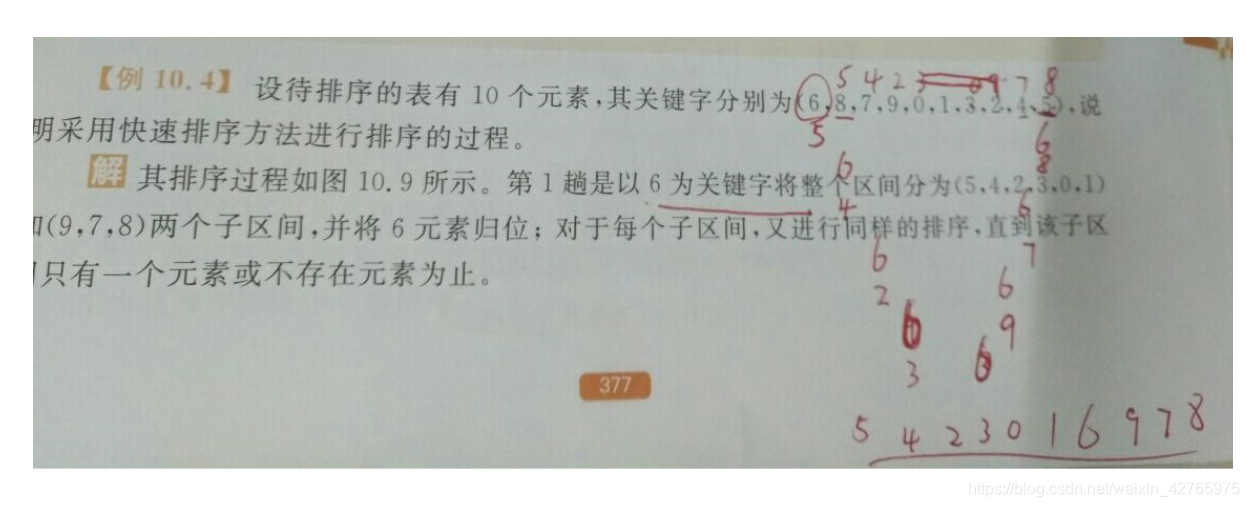 5 4 2 3 0 9 7 8
【例 10.4】 设待排序的表有 10 个元素,其关键字分别为(6,8,7,9,0,1,3,2,4,5),说
5 6
明采用快速排序方法进行排序的过程。
6 8
解 其排序过程如图 10.9 所示。第 1 趟是以 6 为关键字将整个区间分为(5,4,2,3,0,1)
4 6
(9,7,8)两个子区间,并将 6 元素归位;对于每个子区间,又进行同样的排序,直到该子区
6 7
只有一个元素或不存在元素为止。
2 6
6 9
3 6
377
5 4 2 3 0 1 6 9 7 8
https://blog.csdn.net/weixin_42765975